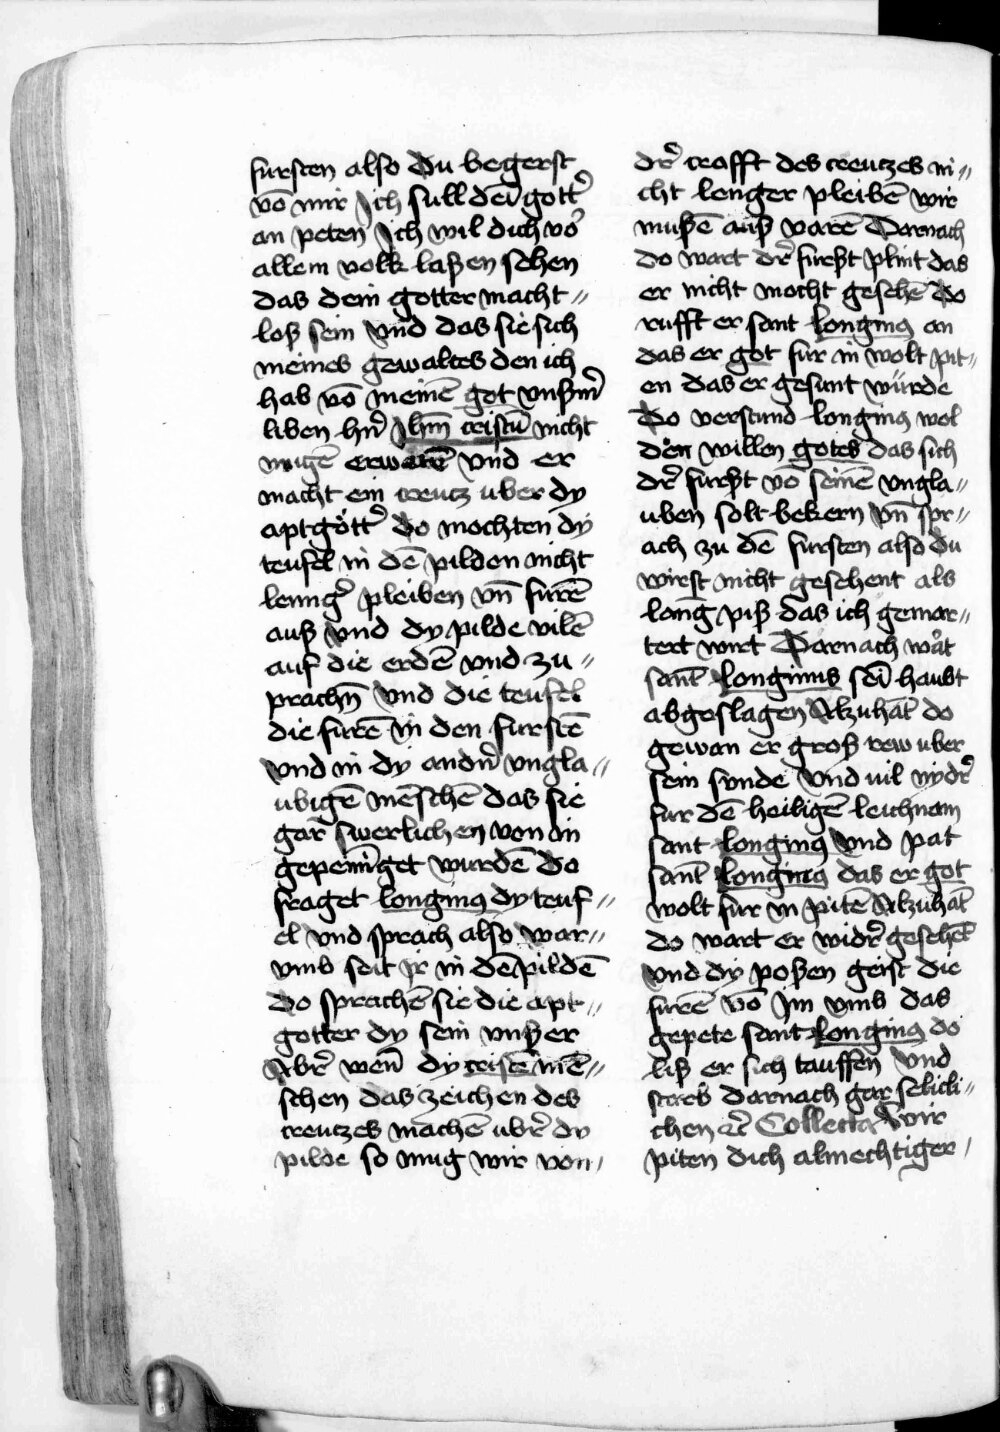 fursten also du begerst
vō mir Ich sull dein̄ gott᷑
an peten Ich wil dich vo᷑
allem volk laßen sehen
das dein gotter macht //
loß sein vnd das sie sich
meines gewaltes den ich
hab vō meinē got vnßm᷑
liben hr᷑ Jhm̄ cristū nicht
mugē erwerē vnd er
macht ein creutz uber dy
aptgött᷑ do mochten dy
teufel in dē pilden nicht
leng᷑ pleiben vn̄ furē
auß vnd dy pilde vilē
auf die erdē vnd zu //
prachn̄ vnd die teufel
die furē in den furstē
vnd in dy andr᷑n vngla //
ubigē mēschē das sie
gar swerlichen von in
gepeiniget wurdē do
fraget longing dy teuf //
el vnd sprach also war //
vmb seit ir in dē pildē
do sprachē sie die apt //
gotter dy sein vnßer
Abr᷑ wen̄ dy cristē mē //
schen das zeichen des
creutzes machē ubr᷑ dy
pilde so mug wir von /
dr᷑ crafft des creutzes ni //
cht lenger pleibē wir
mußē auß varē Darnach
do wart dr᷑ furßt plint das
er nicht mocht gesehē do
rufft er sant longinꝰ an
das er got fur in wolt pit //
en das er gesunt würde
Do verstund longinꝰ wol
den willen gotes das sich
dr᷑ furßt vō seinē vngla //
uben solt bekern vn̄ spr //
ach zu dē fursten also du
wirst nicht gesehent als
lang piß das ich gemar //
tert wirt Darnach wart
sant longinus sei̅ haubt
abgeslagen Alzuhāt do
gewan er groß rew uber
sein sunde vnd vil nydr᷑
fur dē heiligē leichnam
sant longinꝰ vnd pat
sant longinꝰ das er got
wolt fur in pitē Alzuhāt
do wart er widr᷑ gesehēt
vnd dy poßen geist die
furē vō im vmb das
gepete sant longinꝰ do
liß er sich tauffen vnd
starb darnach gar selicli //
chen ꝛc Collecta Wir
piten dich almechtiger /